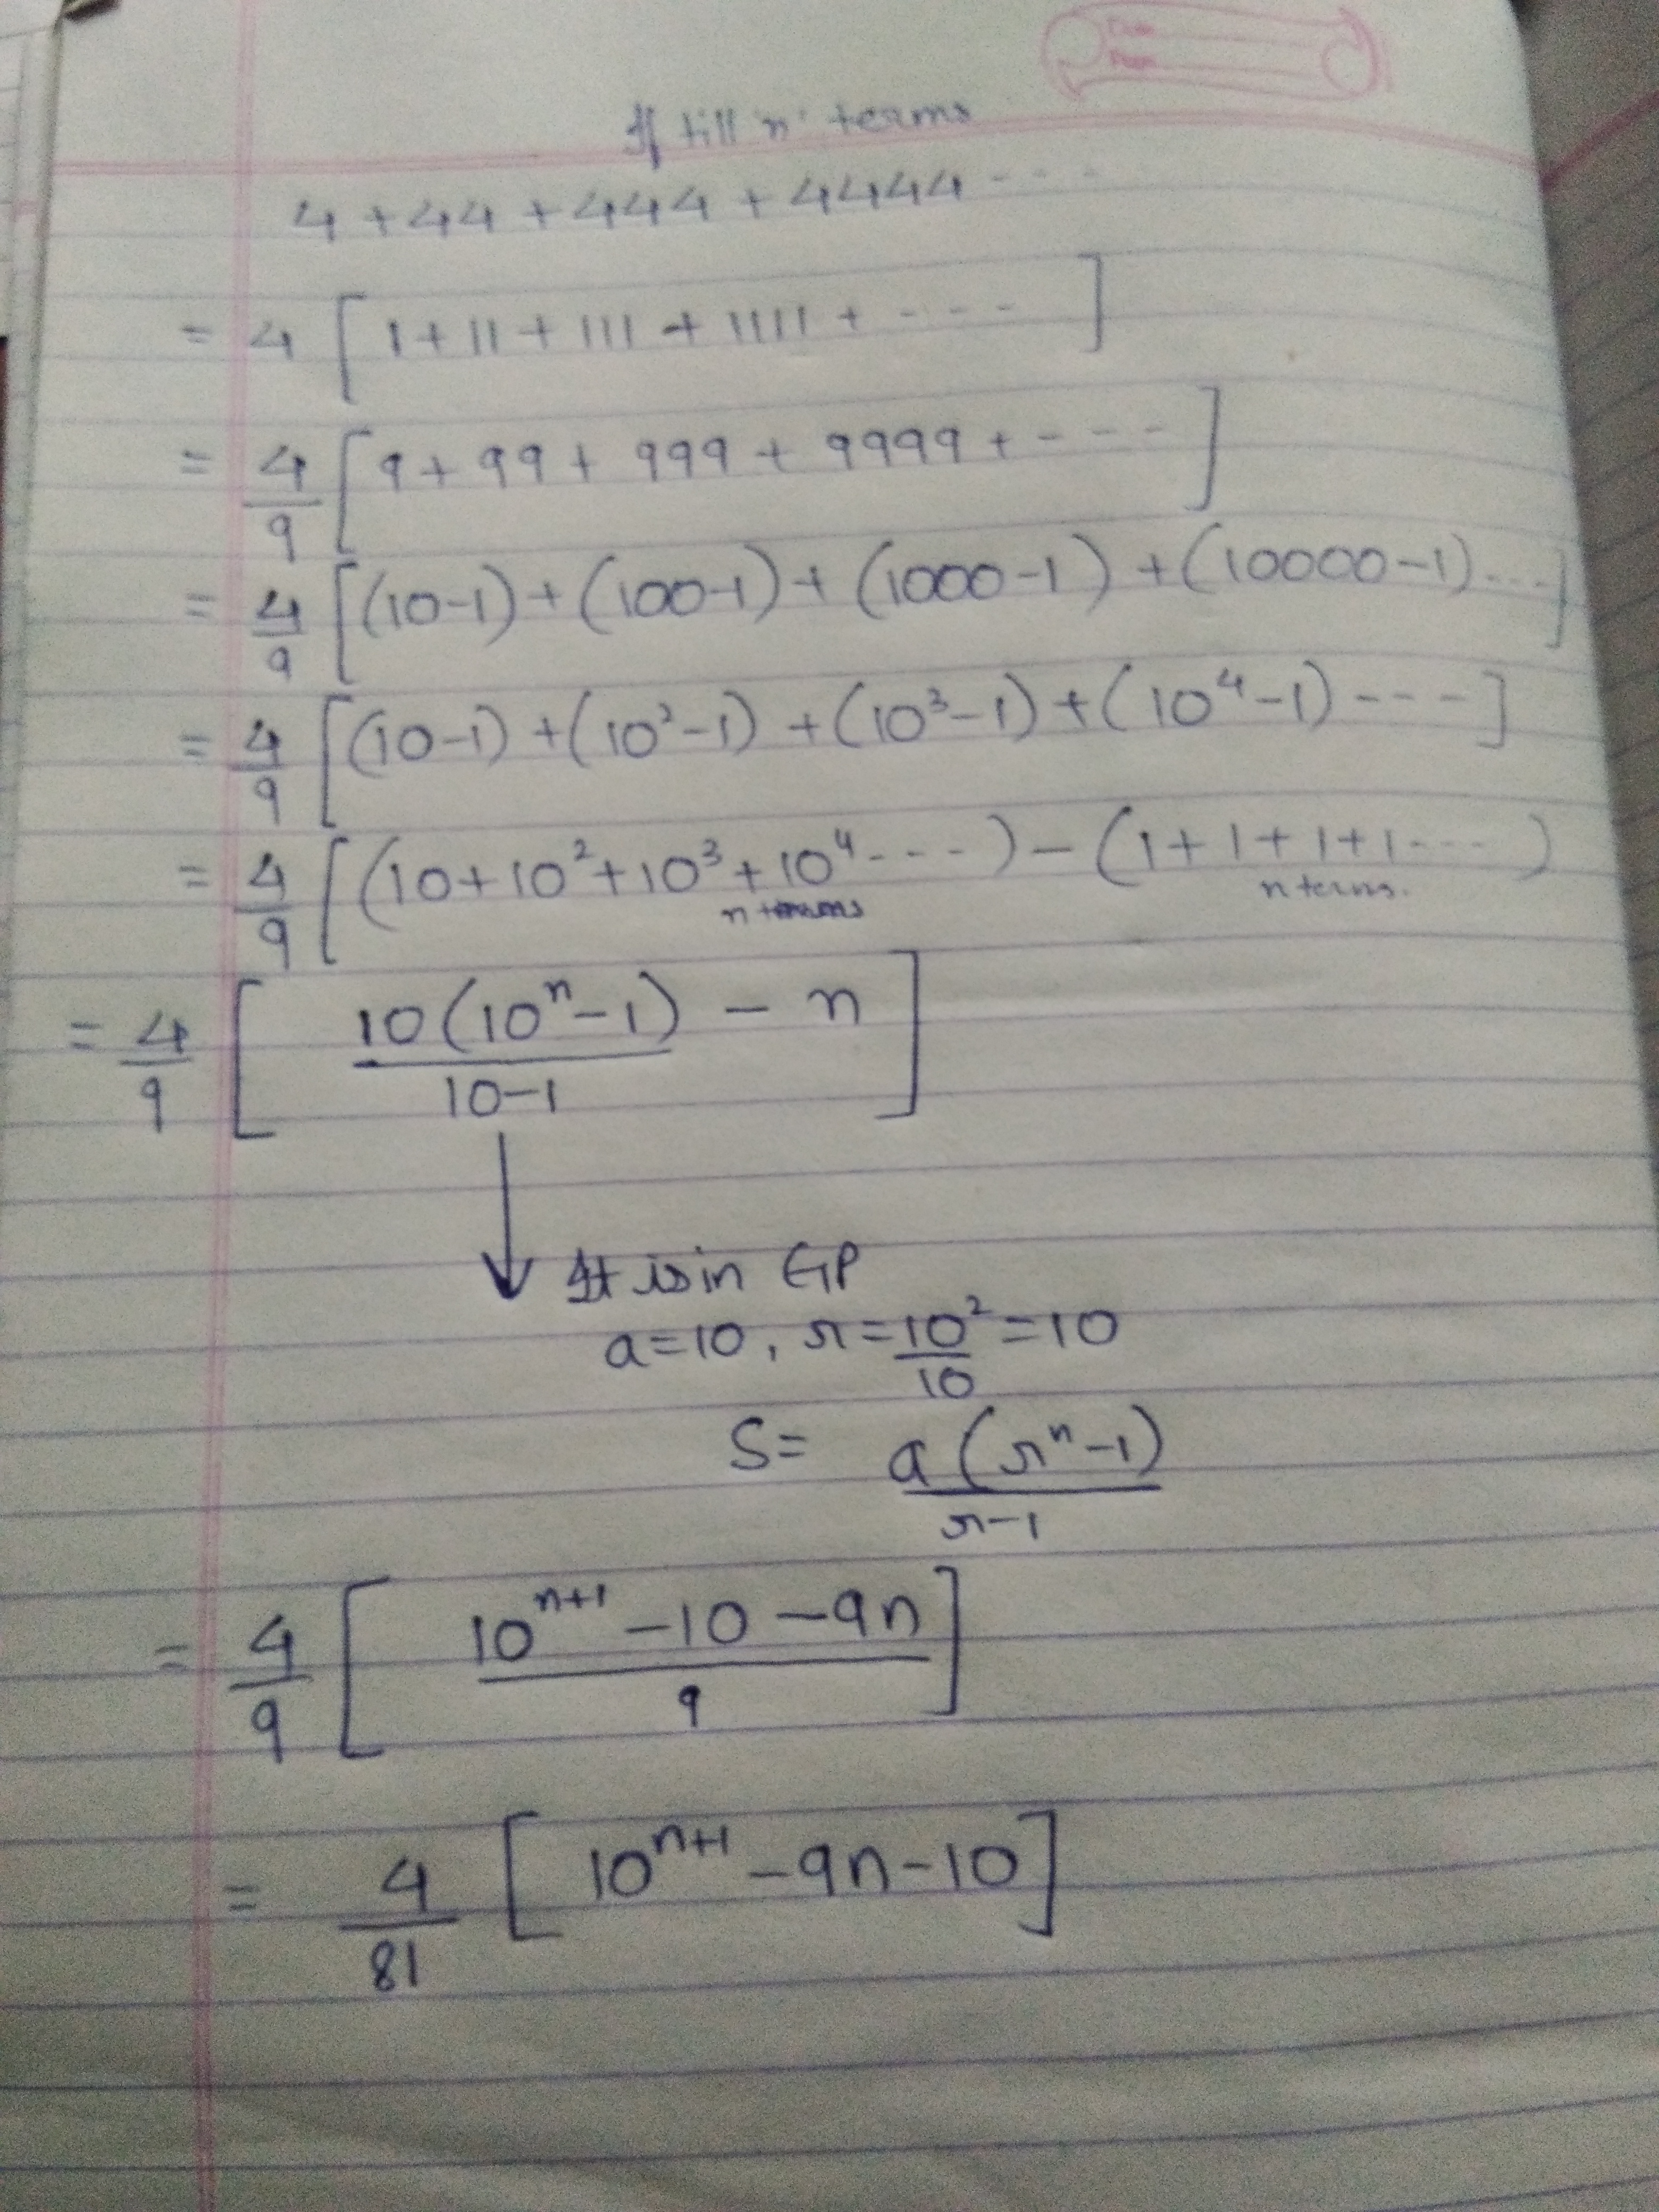 If till 'n' terms
4 + 44 + 444 + 4444 - - -
= 4 [ 1 + 11 + 111 + 1111 + - - - - ]
= 4/9 [ 9 + 99 + 999 + 9999 + - - - ]
= 4/9 [ (10-1) + (100-1) + (1000-1) + (10000-1) ... ]
= 4/9 [ (10-1) + (10²-1) + (10³-1) + (10⁴-1) - - - - ]
= 4/9 [ (10 + 10² + 10³ + 10⁴ - - - ) - (1 + 1 + 1 + 1 - - - - )
n terms n terms.
= 4/9 [ 10(10ⁿ-1)/10-1 - n ]
It is in GP
a = 10, r = 10²/10 = 10
S = a(rⁿ-1)/r-1
= 4/9 [ 10ⁿ⁺¹ - 10 - 9n/9 ]
= 4/81 [ 10ⁿ⁺¹ - 9n - 10 ]